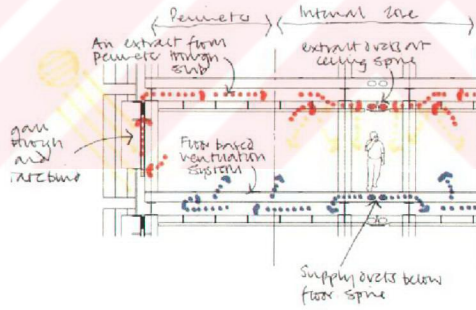 Perimeter
Internal Zone
An extract from
perimeter through
slab
extract ducts at
ceiling spine
gain
through
and
Floor based
ventilation
system
Supply ducts below
floor spine